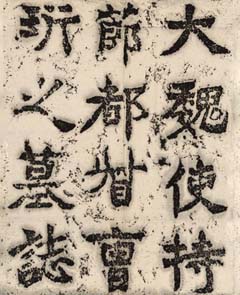 大魏使持
節都督曹
之墓誌